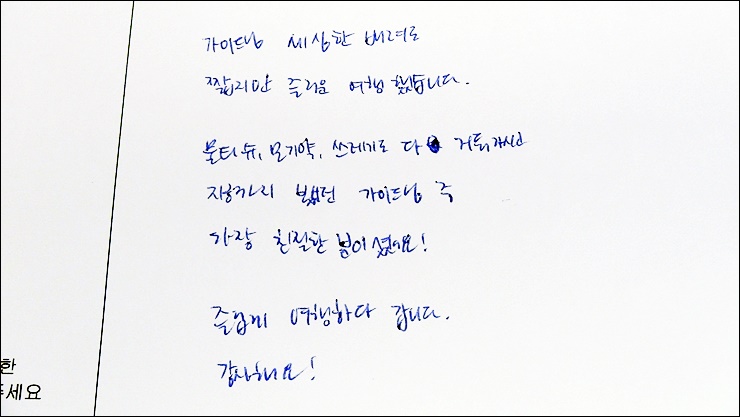 가이드님 세심한 배려로
짧지만 즐거운 여행 했습니다.
물티슈, 모기약, 쓰레기도 다
지금까지 봤던 가이드님 중
가장 친절한 분이셨어요!
즐겁게 여행하다 갑니다.
감사해요!
한
주세요